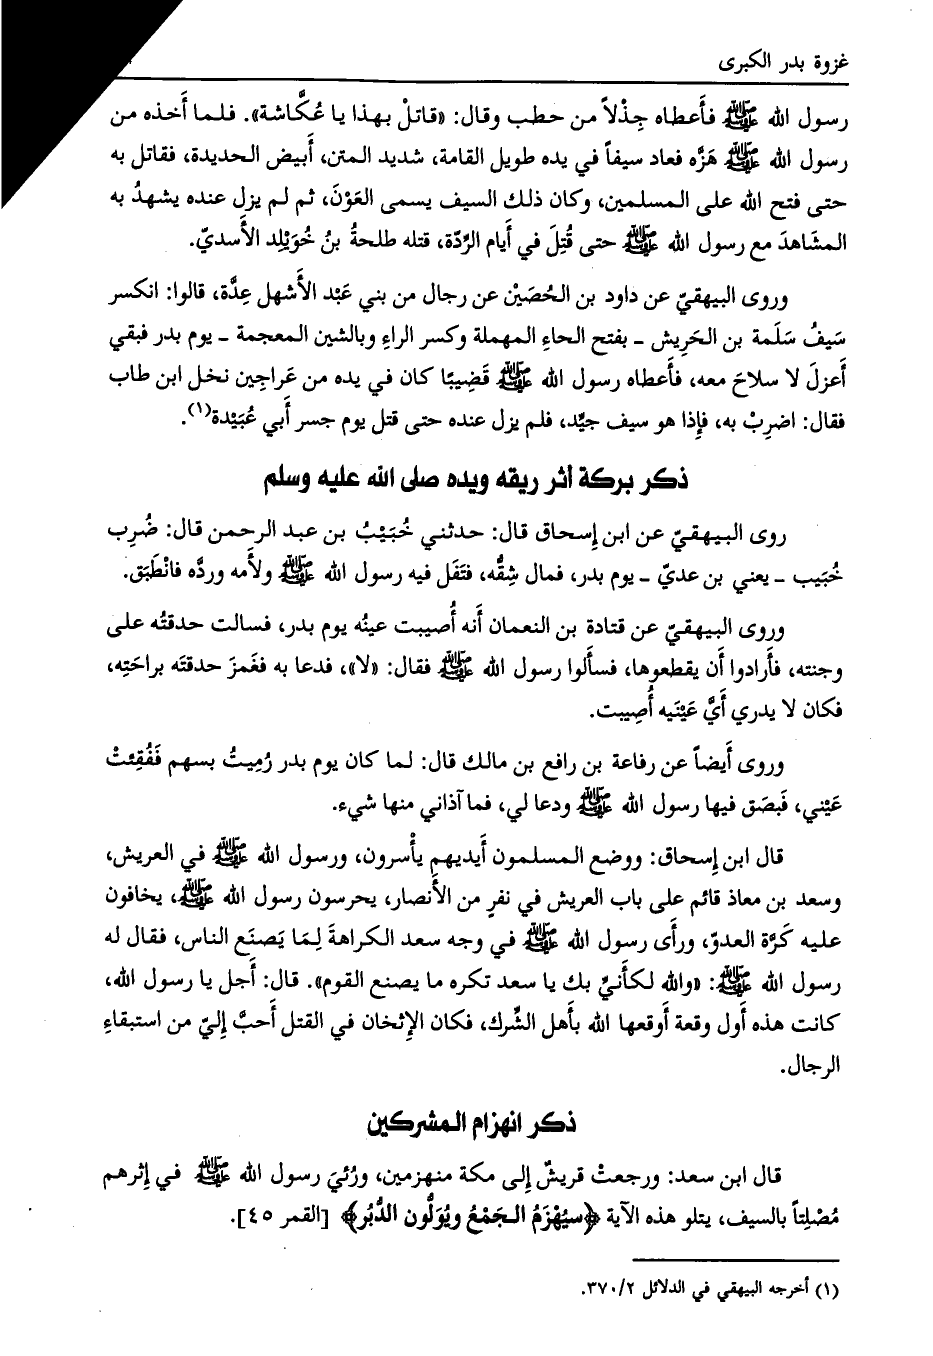 غزوة بدر الكبرى
رسول الله ﷺ فأَعطاه جِذْلاً من حطب وقال: «قاتلْ بهذا يا عُكَّاشة». فلما أَخذه من
رسول الله ﷺ هَزَّه فعاد سيفاً في يده طويل القامة، شديد المتن، أَبيض الحديدة، فقاتل به
حتى فتح الله على المسلمين، وكان ذلك السيف يسمى العَوْنَ، ثم لم يزل عنده يشهدُ به
المشَاهدَ مع رسول الله ﷺ حتى قُتِلَ في أَيام الرِّدّة، قتله طلحةُ بنُ خُوَيْلِد الأَسديّ.
وروى البيهقيّ عن داود بن الحُصَيْن عن رجال من بني عَبْد الأَشهل عِدَّة، قالوا: انكسر
سَيفُ سَلَمة بن الحَرِيش ـ بفتح الحاءِ المهملة وكسر الراءِ وبالشين المعجمة ـ يوم بدر فبقي
أَعزلَ لا سلاحَ معه، فأَعطاه رسول الله ﷺ قَضِيبًا كان في يده من عَراجين نخل ابن طاب
فقال: اضرِبْ به، فإِذا هو سيف جيِّد، فلم يزل عنده حتى قتل يوم جسر أَبي عُبَيْدة(١).
ذكر بركة أثر ريقه ويده صلى الله عليه وسلم
روى البيهقيّ عن ابن إِسحاق قال: حدثني خُبَيْبُ بن عبد الرحمن قال: ضُرِب
خُبَيب ـ يعني بن عديّ ـ يوم بدر، فمال شِقُّه، فتَفَل فيه رسول الله ﷺ ولأَمه وردَّه فانْطَبَق.
وروى البيهقيّ عن قتادة بن النعمان أَنه أُصيبت عينُه يوم بدر، فسالت حدقتُه على
وجنته، فأَرادوا أَن يقطعوها، فسأَلوا رسول الله ﷺ فقال: «لا»، فدعا به فغَمزَ حدقتَه براحَتِه،
فكان لا يدري أَيَّ عَيْنَيه أُصِيبت.
وروى أَيضاً عن رفاعة بن رافع بن مالك قال: لما كان يوم بدر رُمِيتُ بسهم فَفُقِئتْ
عَيْني، فَبصَق فيها رسول الله ﷺ ودعا لي، فما آذاني منها شيء.
قال ابن إِسحاق: ووضع المسلمون أَيديهم يأْسرون، ورسول الله ﷺ في العريش،
وسعد بن معاذ قائم على باب العريش في نفرٍ من الأَنصار، يحرسون رسول الله ﷺ، يخافون
عليه كَرَّة العدوّ، ورأَى رسول الله ﷺ في وجه سعد الكراهةَ لِمَا يَصنَع الناس، فقال له
رسول الله ﷺ: «والله لكأَنيِّ بك يا سعد تكره ما يصنع القوم». قال: أَجل يا رسول الله،
كانت هذه أَول وقعة أَوقعها الله بأَهل الشِّرك، فكان الإِثخان في القتل أَحبَّ إِليّ من استبقاءِ
الرجال.
ذكر انهزام المشركين
قال ابن سعد: ورجعتْ قريشٌ إِلى مكة منهزمين، ورُئيَ رسول الله ﷺ في إِثرهم
مُصْلِتاً بالسيف، يتلو هذه الآية ﴿سيُهْزَمُ الجَمْعُ ويُوَلُّون الدُّبُر﴾ [القمر ٤٥].
(١) أخرجه البيهقي في الدلائل ٣٧٠/٢.